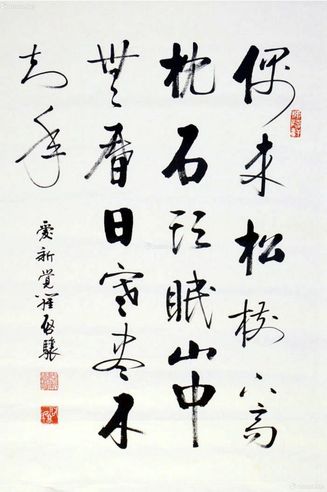 偶来松樹下高
枕石頭眠山中
無曆日寒盡不
知年
愛新覺羅啟驤